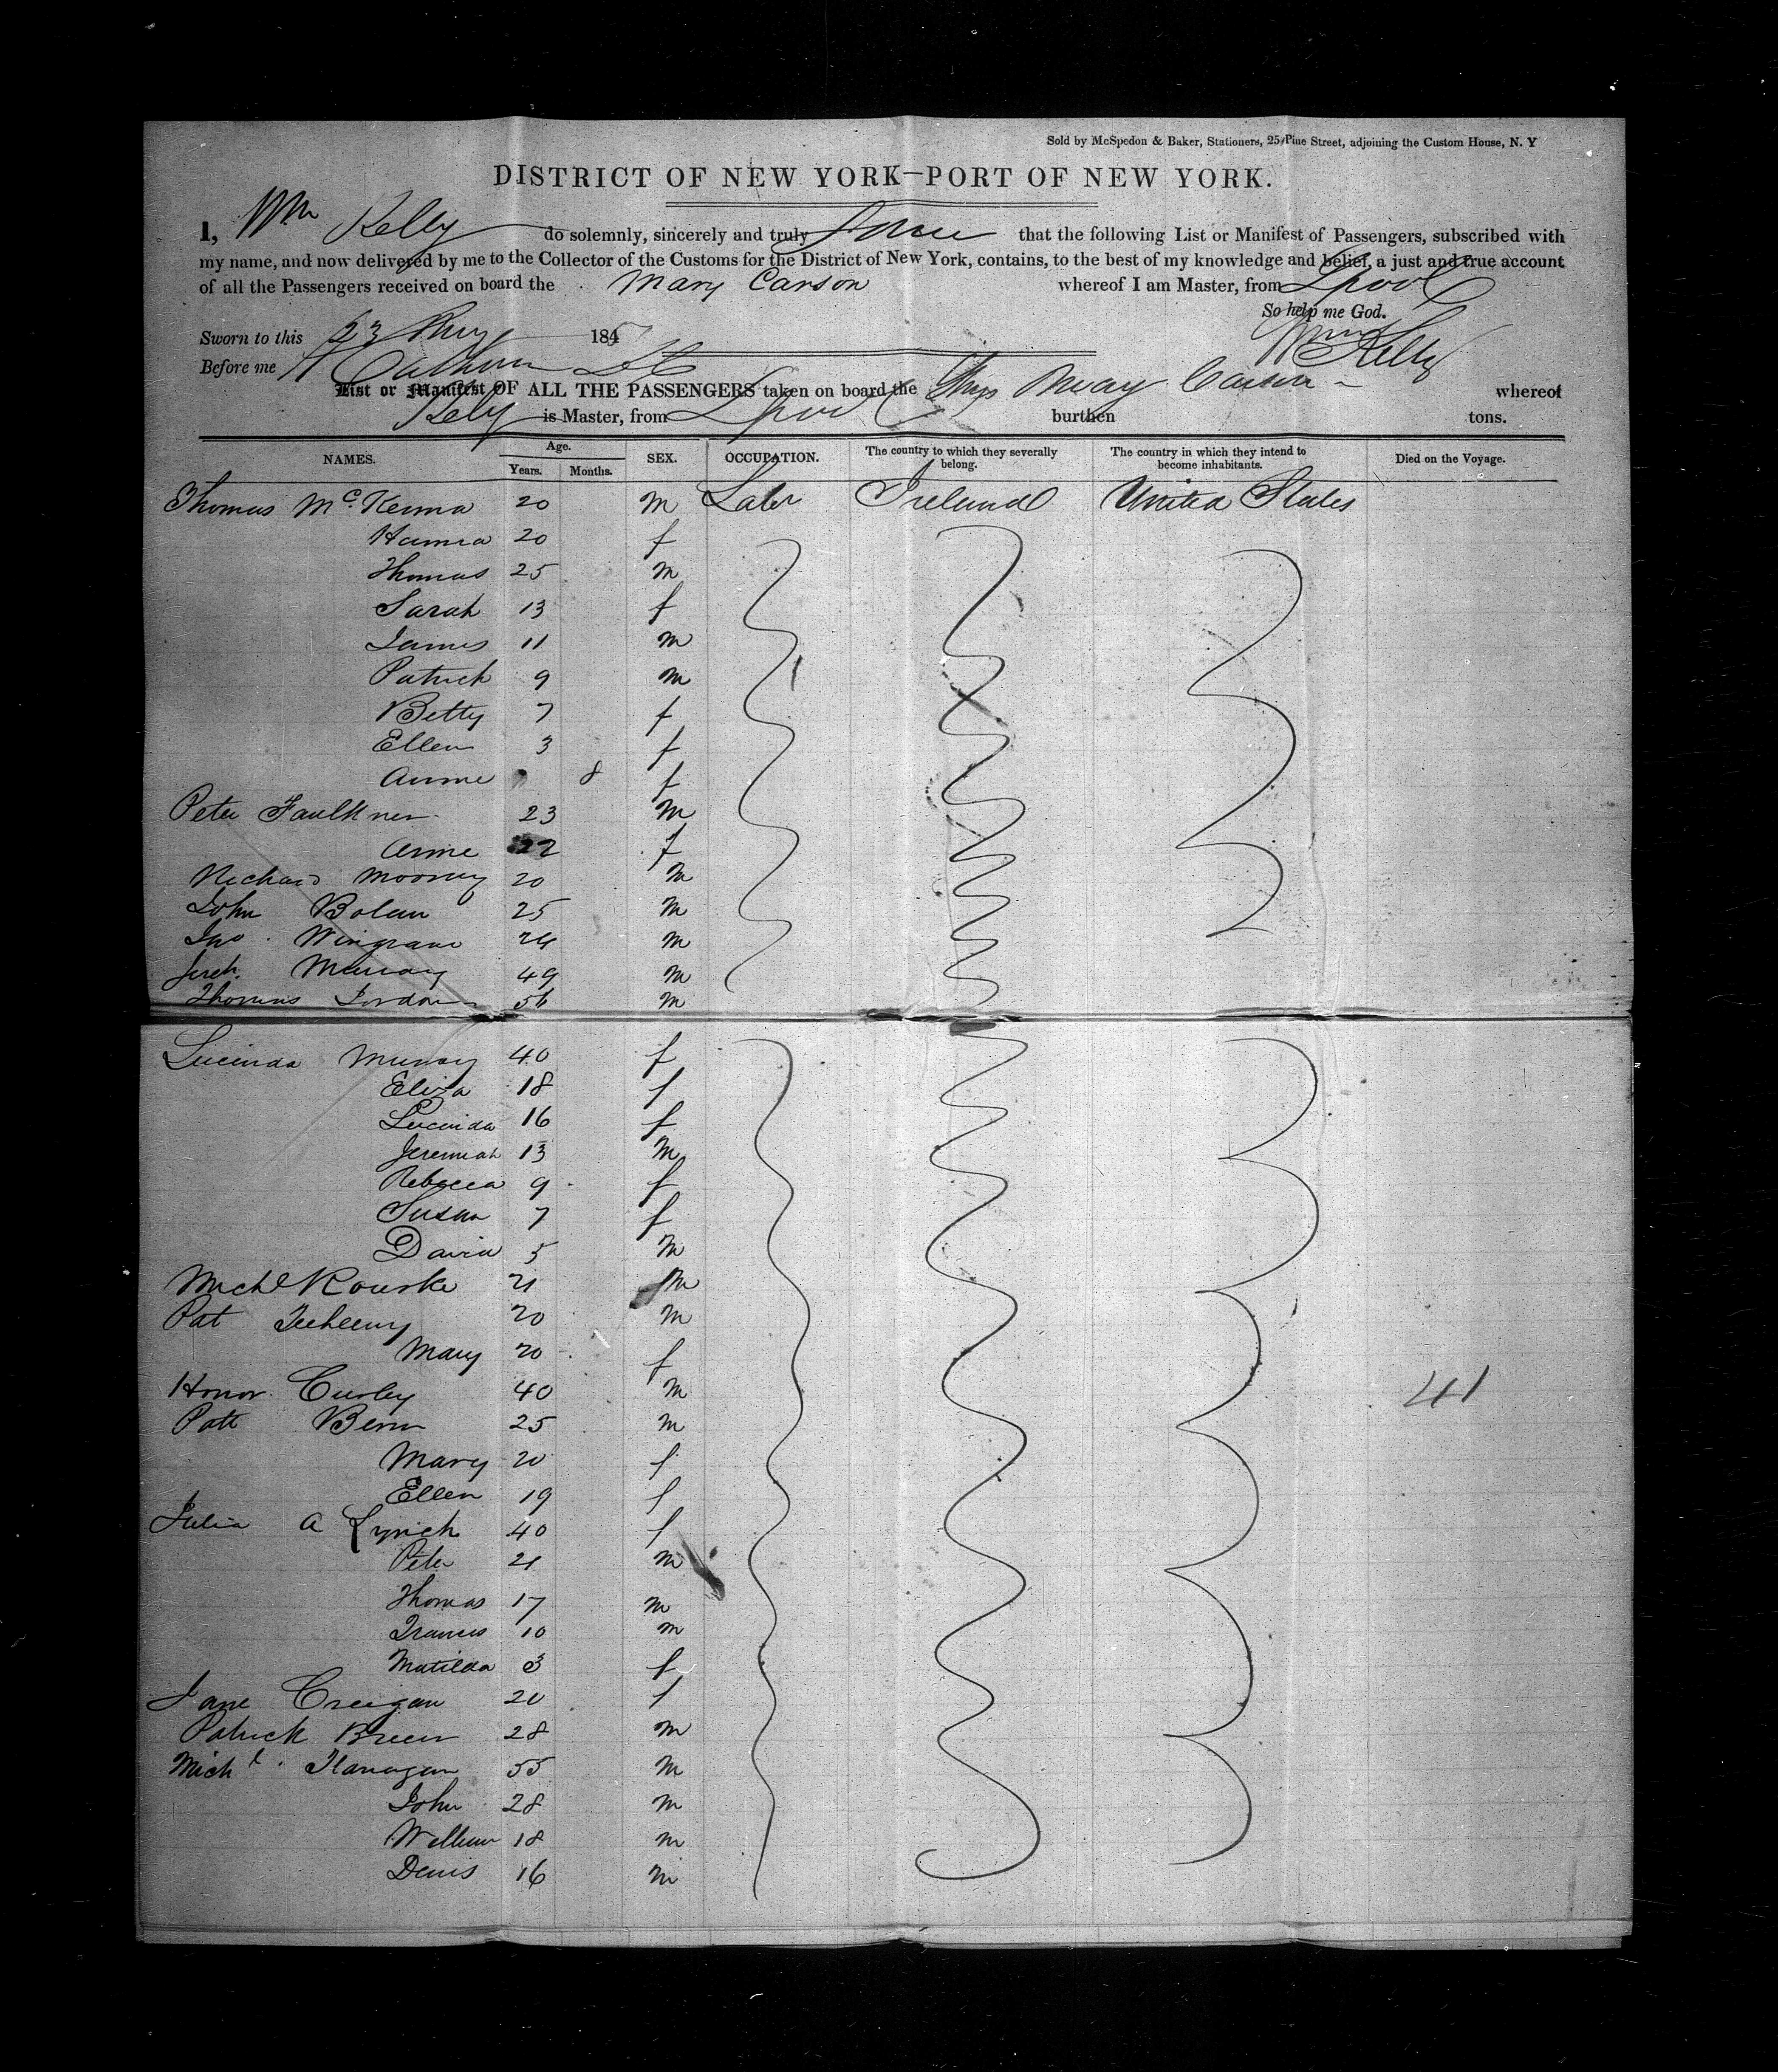 Sold by McSpedon & Baker, Stationers, 25 Pine Street, adjoining the Custom House, N. Y
DISTRICT OF NEW YORK—PORT OF NEW YORK.
I, Wm Kelly do solemnly, sincerely and truly that the following List or Manifest of Passengers, subscribed with
my name, and now delivered by me to the Collector of the Customs for the District of New York, contains, to the best of my knowledge and belief, a just and true account
of all the Passengers received on board the Mary Carson whereof I am Master, from Lpool
So help me God.
Sworn to this 23 185
Wm Kelly
Before me
List or Manifest OF ALL THE PASSENGERS taken on board the Ship Mary Carson whereof
Kelly is Master, from Lpool burthen tons.
NAMES. Age. Years. Months. SEX. OCCUPATION. The country to which they severally belong. The country in which they intend to become inhabitants. Died on the Voyage.
Thomas McKenna 20 m Labr Ireland United States
Hanna 20 f
Thomas 25 m
Sarah 13 f
James 11 m
Patrick 9 m
Betty 7 f
Ellen 3 f
Anne 8 f
Peter Faulkner 23 m
Anne 22 f
Richard Mooney 20 m
John Bolan 25 m
Jno. Wingrave 24 m
Jereh. Murray 49 m
Thomas Jordan 56 m
Lucinda Murray 40 f
Eliza 18 f
Lucinda 16 f
Jeremiah 13 m
Rebecca 9 f
Susan 7 f
David 5 m
Michl Rourke 21 m
Pat 20 m
Mary 20 f
Honor Curley 40 m 41
Patt 25 m
Mary 20 f
Ellen 19 f
Julia A Lynch 40 f
Peter 21 m
Thomas 17 m
Francis 10 m
Matilda 3 f
Jane Creigan 20 f
Patrick Breen 28 m
Michl. Flanagan 55 m
John 28 m
William 18 m
Denis 16 m